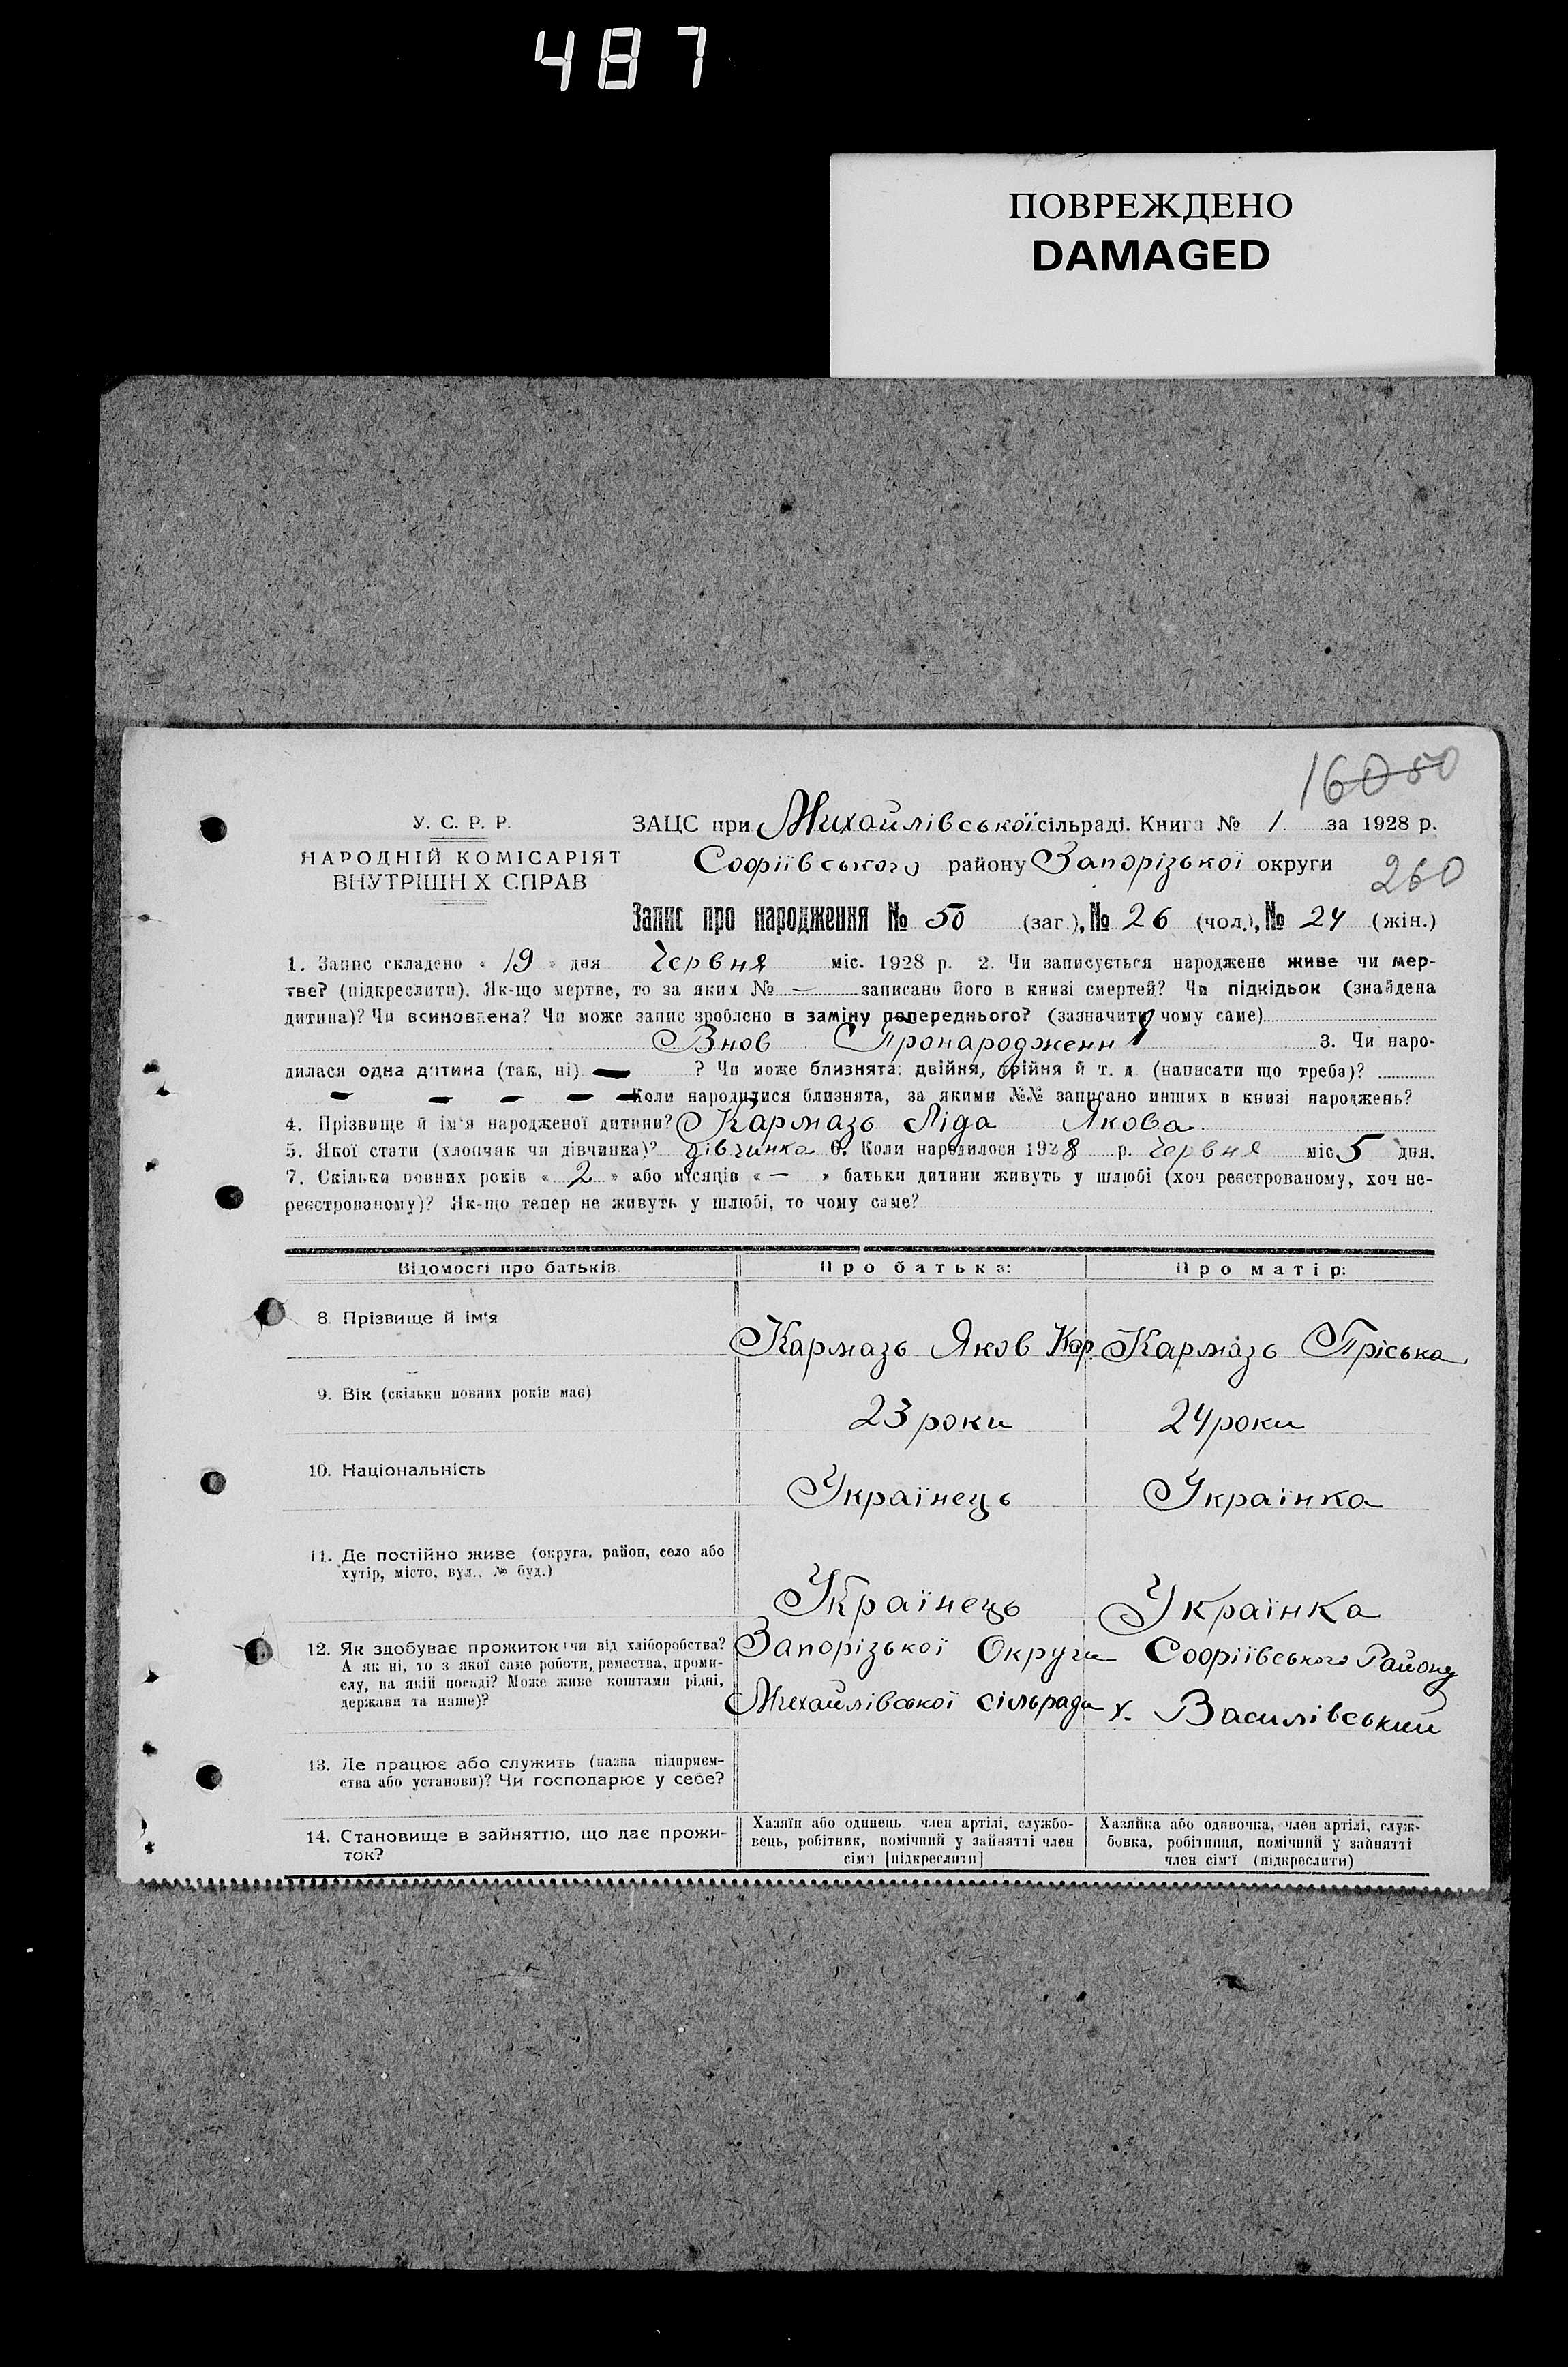 487
ПОВРЕЖДЕНО
DAMAGED
16050
У. С. Р. Р.
НАРОДНІЙ КОМІСАРІЯТ
ВНУТРІШН Х СПРАВ
ЗАЦС при Михайлівської сільраді. Книга № 1 за 1928 р.
Софіївського району Запорізької округи
260
Запис про народження № 50 (заг.), № 26 (чол.), № 24 (жін.)
1. Запис складено « 19 » дня Червня міс. 1928 р. 2. Чи записується народжене живе чи мер-
тве? (підкреслити). Як-що мертве, то за яким № — записано його в книзі смертей? Чи підкідьок (знайдена
дитина)? Чи всиновлена? Чи може запис зроблено в заміну попереднього? (зазначити чому саме)
Внов Пронародження 3. Чи наро-
дилася одна дитина (так, ні) — ? Чи може близнята: двійня, трійня й т. д. (написати що треба)?
— — — — — Коли народилися близнята, за якими №№ записано инших в книзі народжень?
4. Прізвище й ім'я народженої дитини? Кармазь Ліда Якова
5. Якої стати (хлопчик чи дівчинка)? дівчинка 6. Коли народилося 1928 р. Червня міс 5 дня.
7. Скільки повних років « 2 » або місяців « — » батьки дитини живуть у шлюбі (хоч реєстрованому, хоч не-
реєстрованому)? Як-що тепер не живуть у шлюбі, то чому саме?
Відомості про батьків. Про батька: Про матір:
8. Прізвище й ім'я Кармазь Яков Кор. Кармазь Пріська
9. Вік (скільки повних років має) 23 роки 24 роки
10. Національність Українець Українка
11. Де постійно живе (округа, район, село або
хутір, місто, вул., № буд.) Українець Українка
12. Як здобуває прожиток: чи від хліборобства?
А як ні, то з якої саме роботи, ремества, проми-
слу, на якій посаді? Може живе коштами рідні,
держави та инше)?
Запорізької Округи Софіївського Району
Михайлівської сільради х. Василівський
13. Де працює або служить (назва підприєм-
ства або установи)? Чи господарює у себе?
14. Становище в зайняттю, що дає прожи-
ток?
Хазяїн або одинець член артілі, службо-
вець, робітник, помічний у зайнятті член
сім'ї [підкреслити]
Хазяйка або одиночка, член артілі, служ-
бовка, робітниця, помічний у зайнятті
член сім'ї (підкреслити)